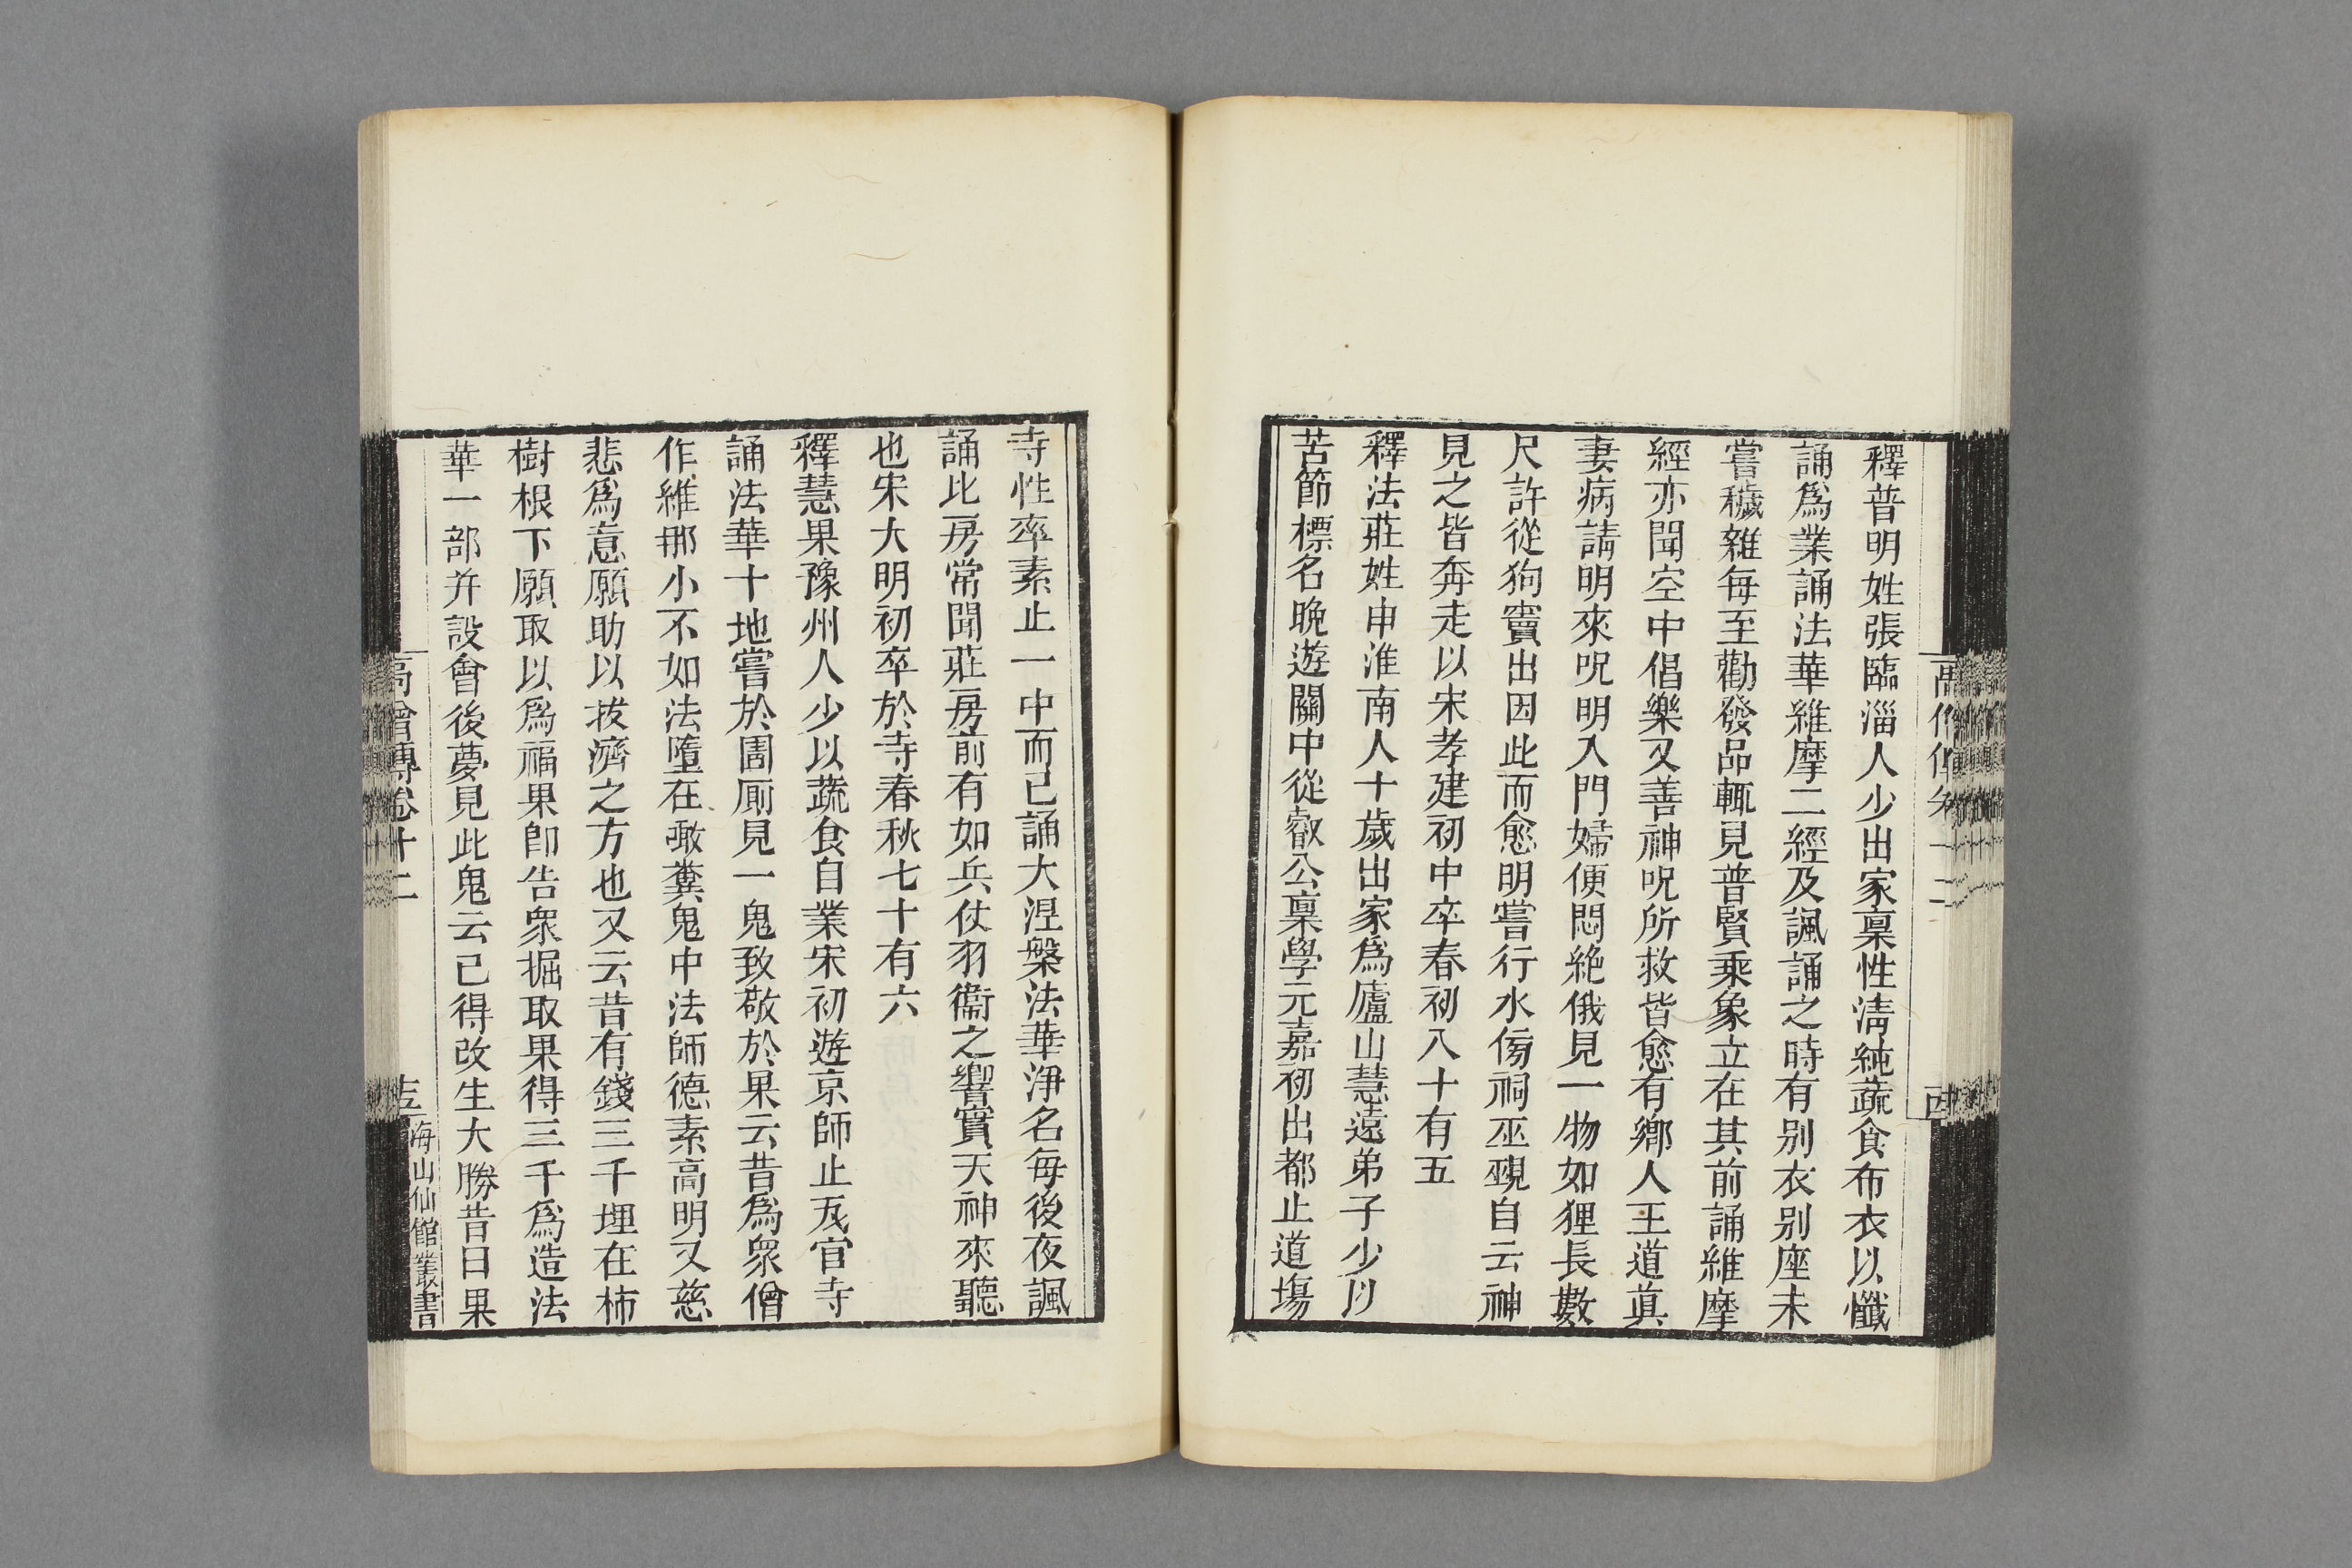 釋普明姓張臨淄人少出家稟性淸純蔬食布衣以懺
誦爲業誦法華維摩二經及諷誦之時有別衣別座未
嘗穢雜每至勸發品輒見普賢乘象立在其前誦維摩
經亦聞空中倡樂又善神呪所救皆愈有鄉人王道眞
妻病請明來呪明入門婦便悶絶俄見一物如狸長數
尺許從狗竇出因此而愈明嘗行水傍祠巫覡自云神
見之皆奔走以宋孝建初中卒春初八十有五
釋法莊姓申淮南人十歲出家爲廬山慧遠弟子少以
苦節標名晩遊關中從叡公稟學元嘉初出都止道場
寺性率素止一中而已誦大涅槃法華淨名每後夜諷
誦比房常聞莊房前有如兵仗羽衞之響實天神來聽
也宋大明初卒於寺春秋七十有六
釋慧果豫州人少以蔬食自業宋初遊京師止瓦官寺
誦法華十地嘗於圊厠見一鬼致敬於果云昔爲衆僧
作維那小不如法墮在噉糞鬼中法師德素高明又慈
悲爲意願助以拔濟之方也又云昔有錢三千埋在柿
樹根下願取以爲福果卽告衆掘取果得三千爲造法
華一部并設會後夢見此鬼云已得改生大勝昔日果
高僧傳卷十二
海山仙館叢書